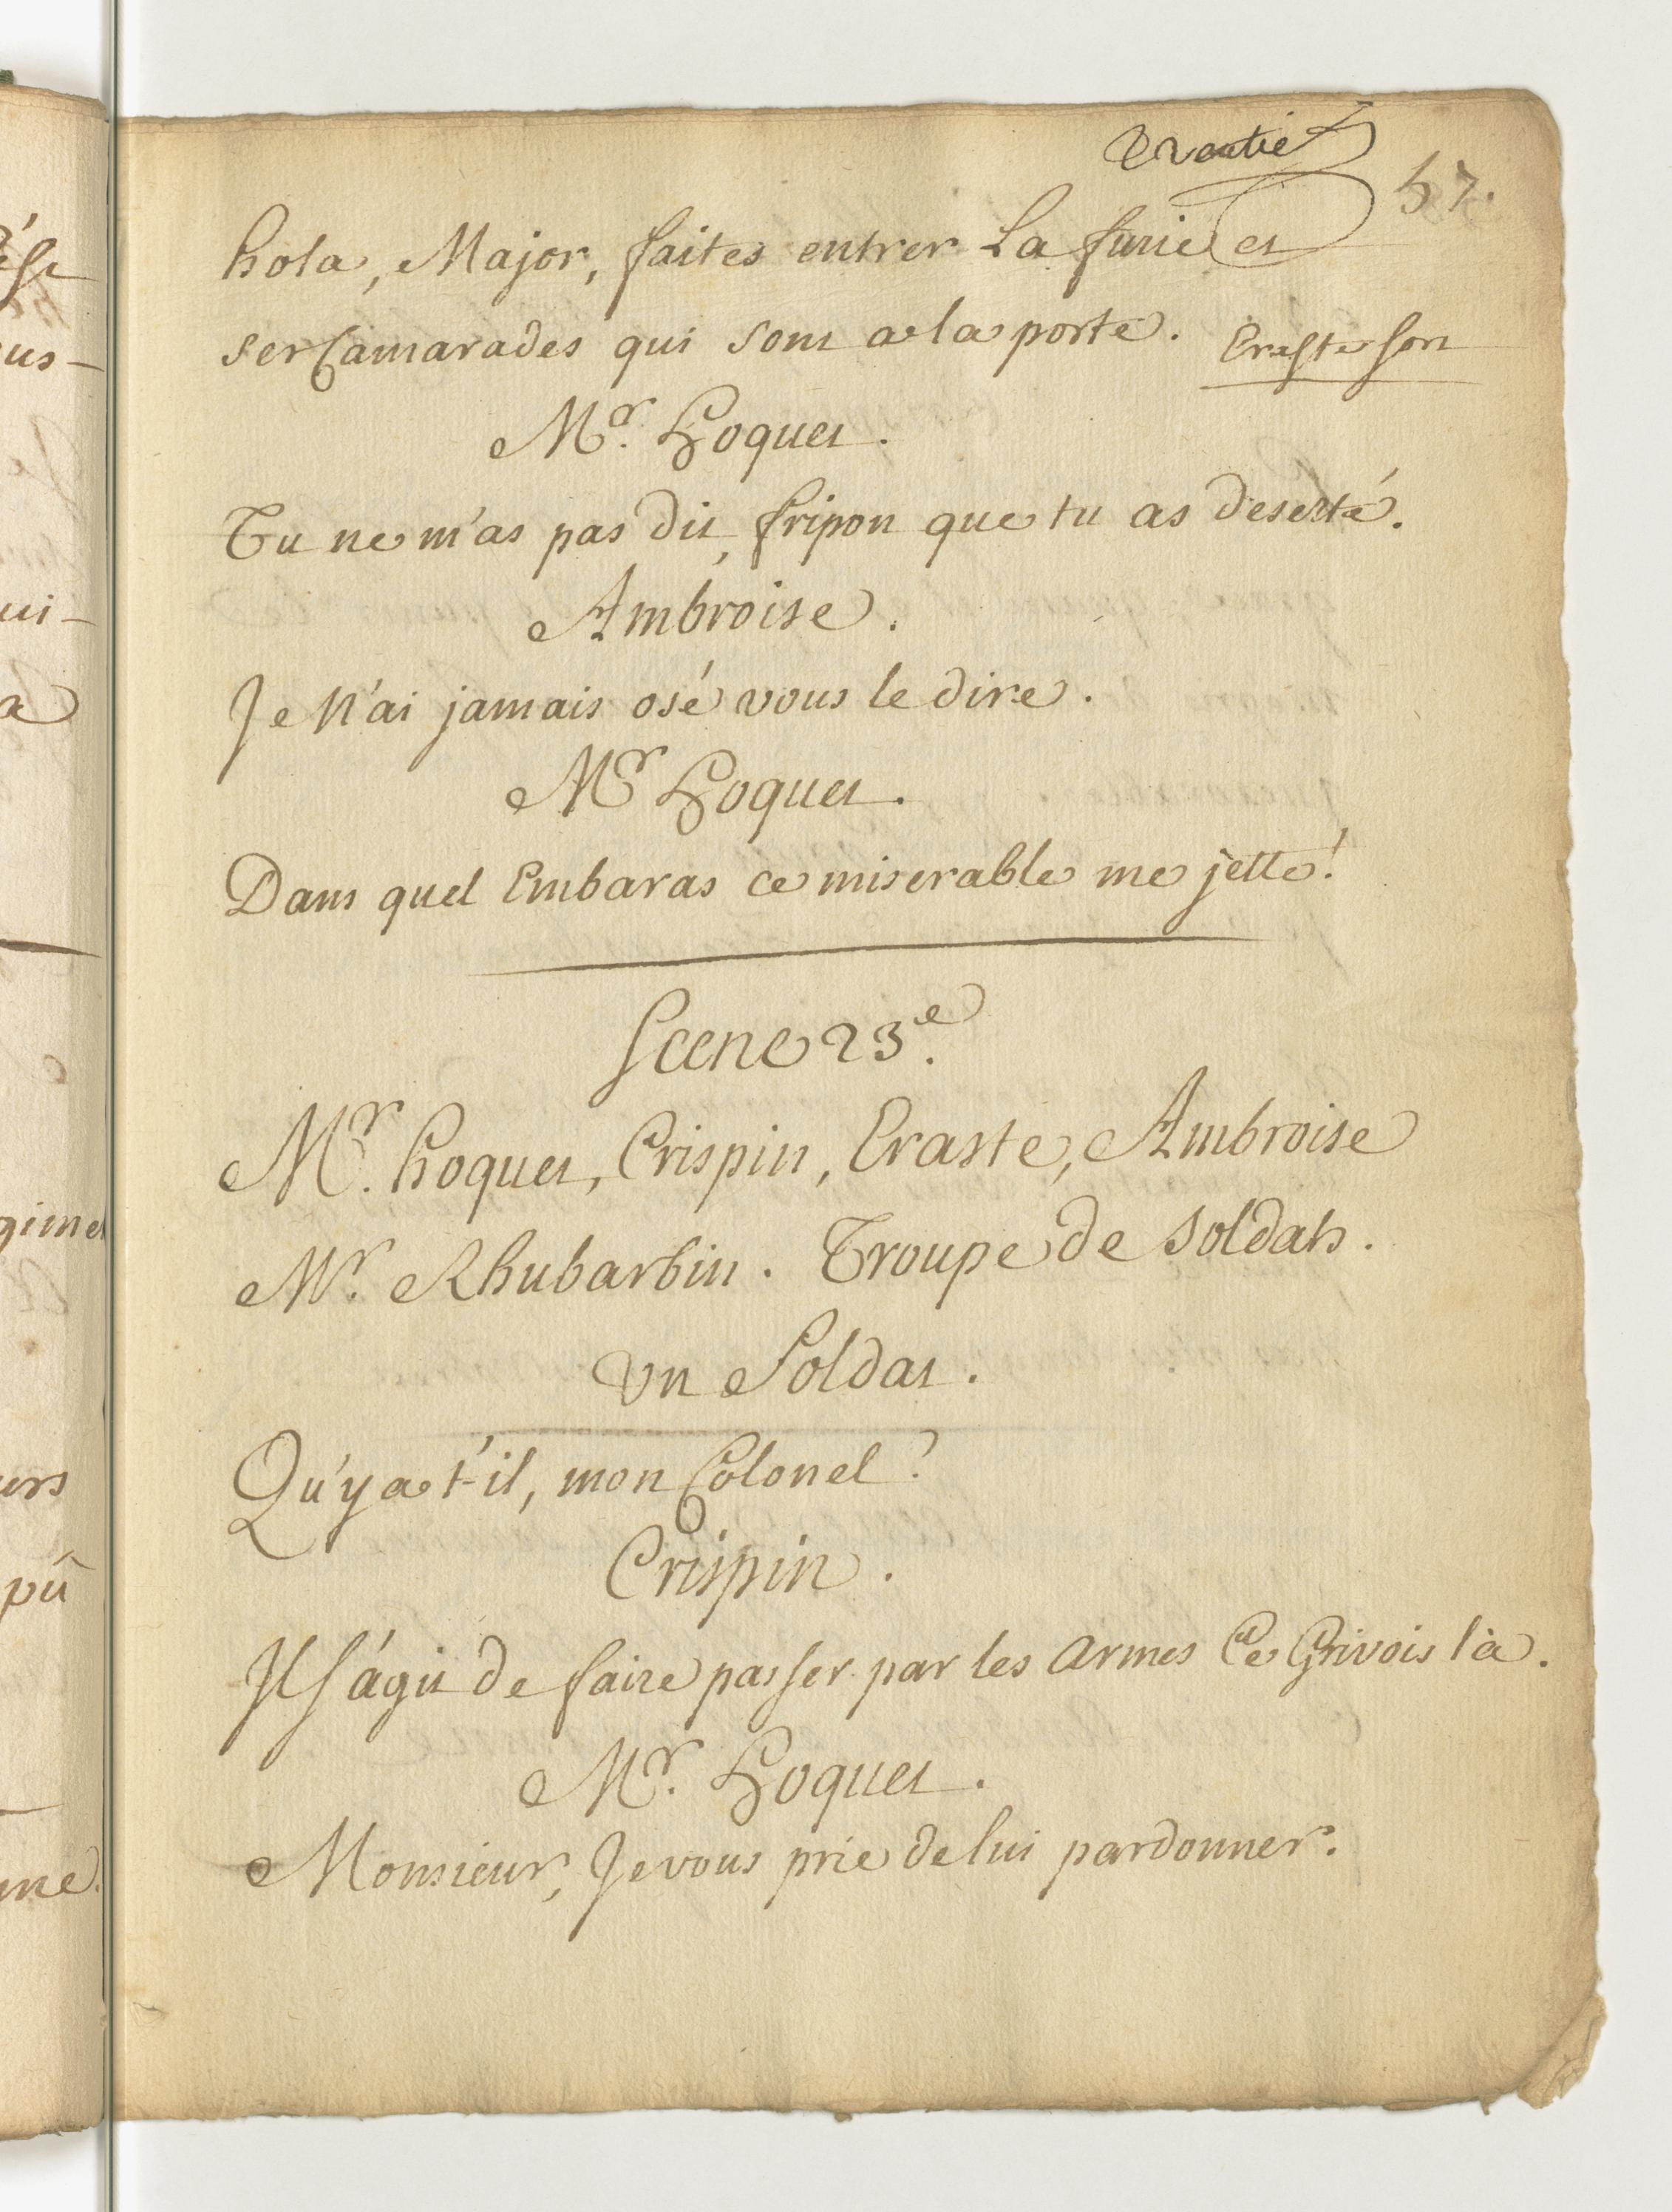 57.
hola, Major, faites entrer La furie et
ses Camarades qui sont a la porte. Eraste sort
Mr. Hoquet.
Tu ne m'as pas dit, fripon que tu as deserté.
Ambroise.
Je n'ai jamais osé vous le dire.
Mr Hoquet.
Dans quel Embaras ce miserable me jette!
Scene 23e.
Mr. hoquet, Crispin, Eraste, Ambroise
Mr. Rhubarbin. Troupe de soldats.
un Soldat.
Qu'y a t-il, mon Colonel?
Crispin.
Il s'agit de faire passer par les armes Ce Grivois là.
Mr. Hoquet.
Monsieur, Je vous prie de lui pardonner.